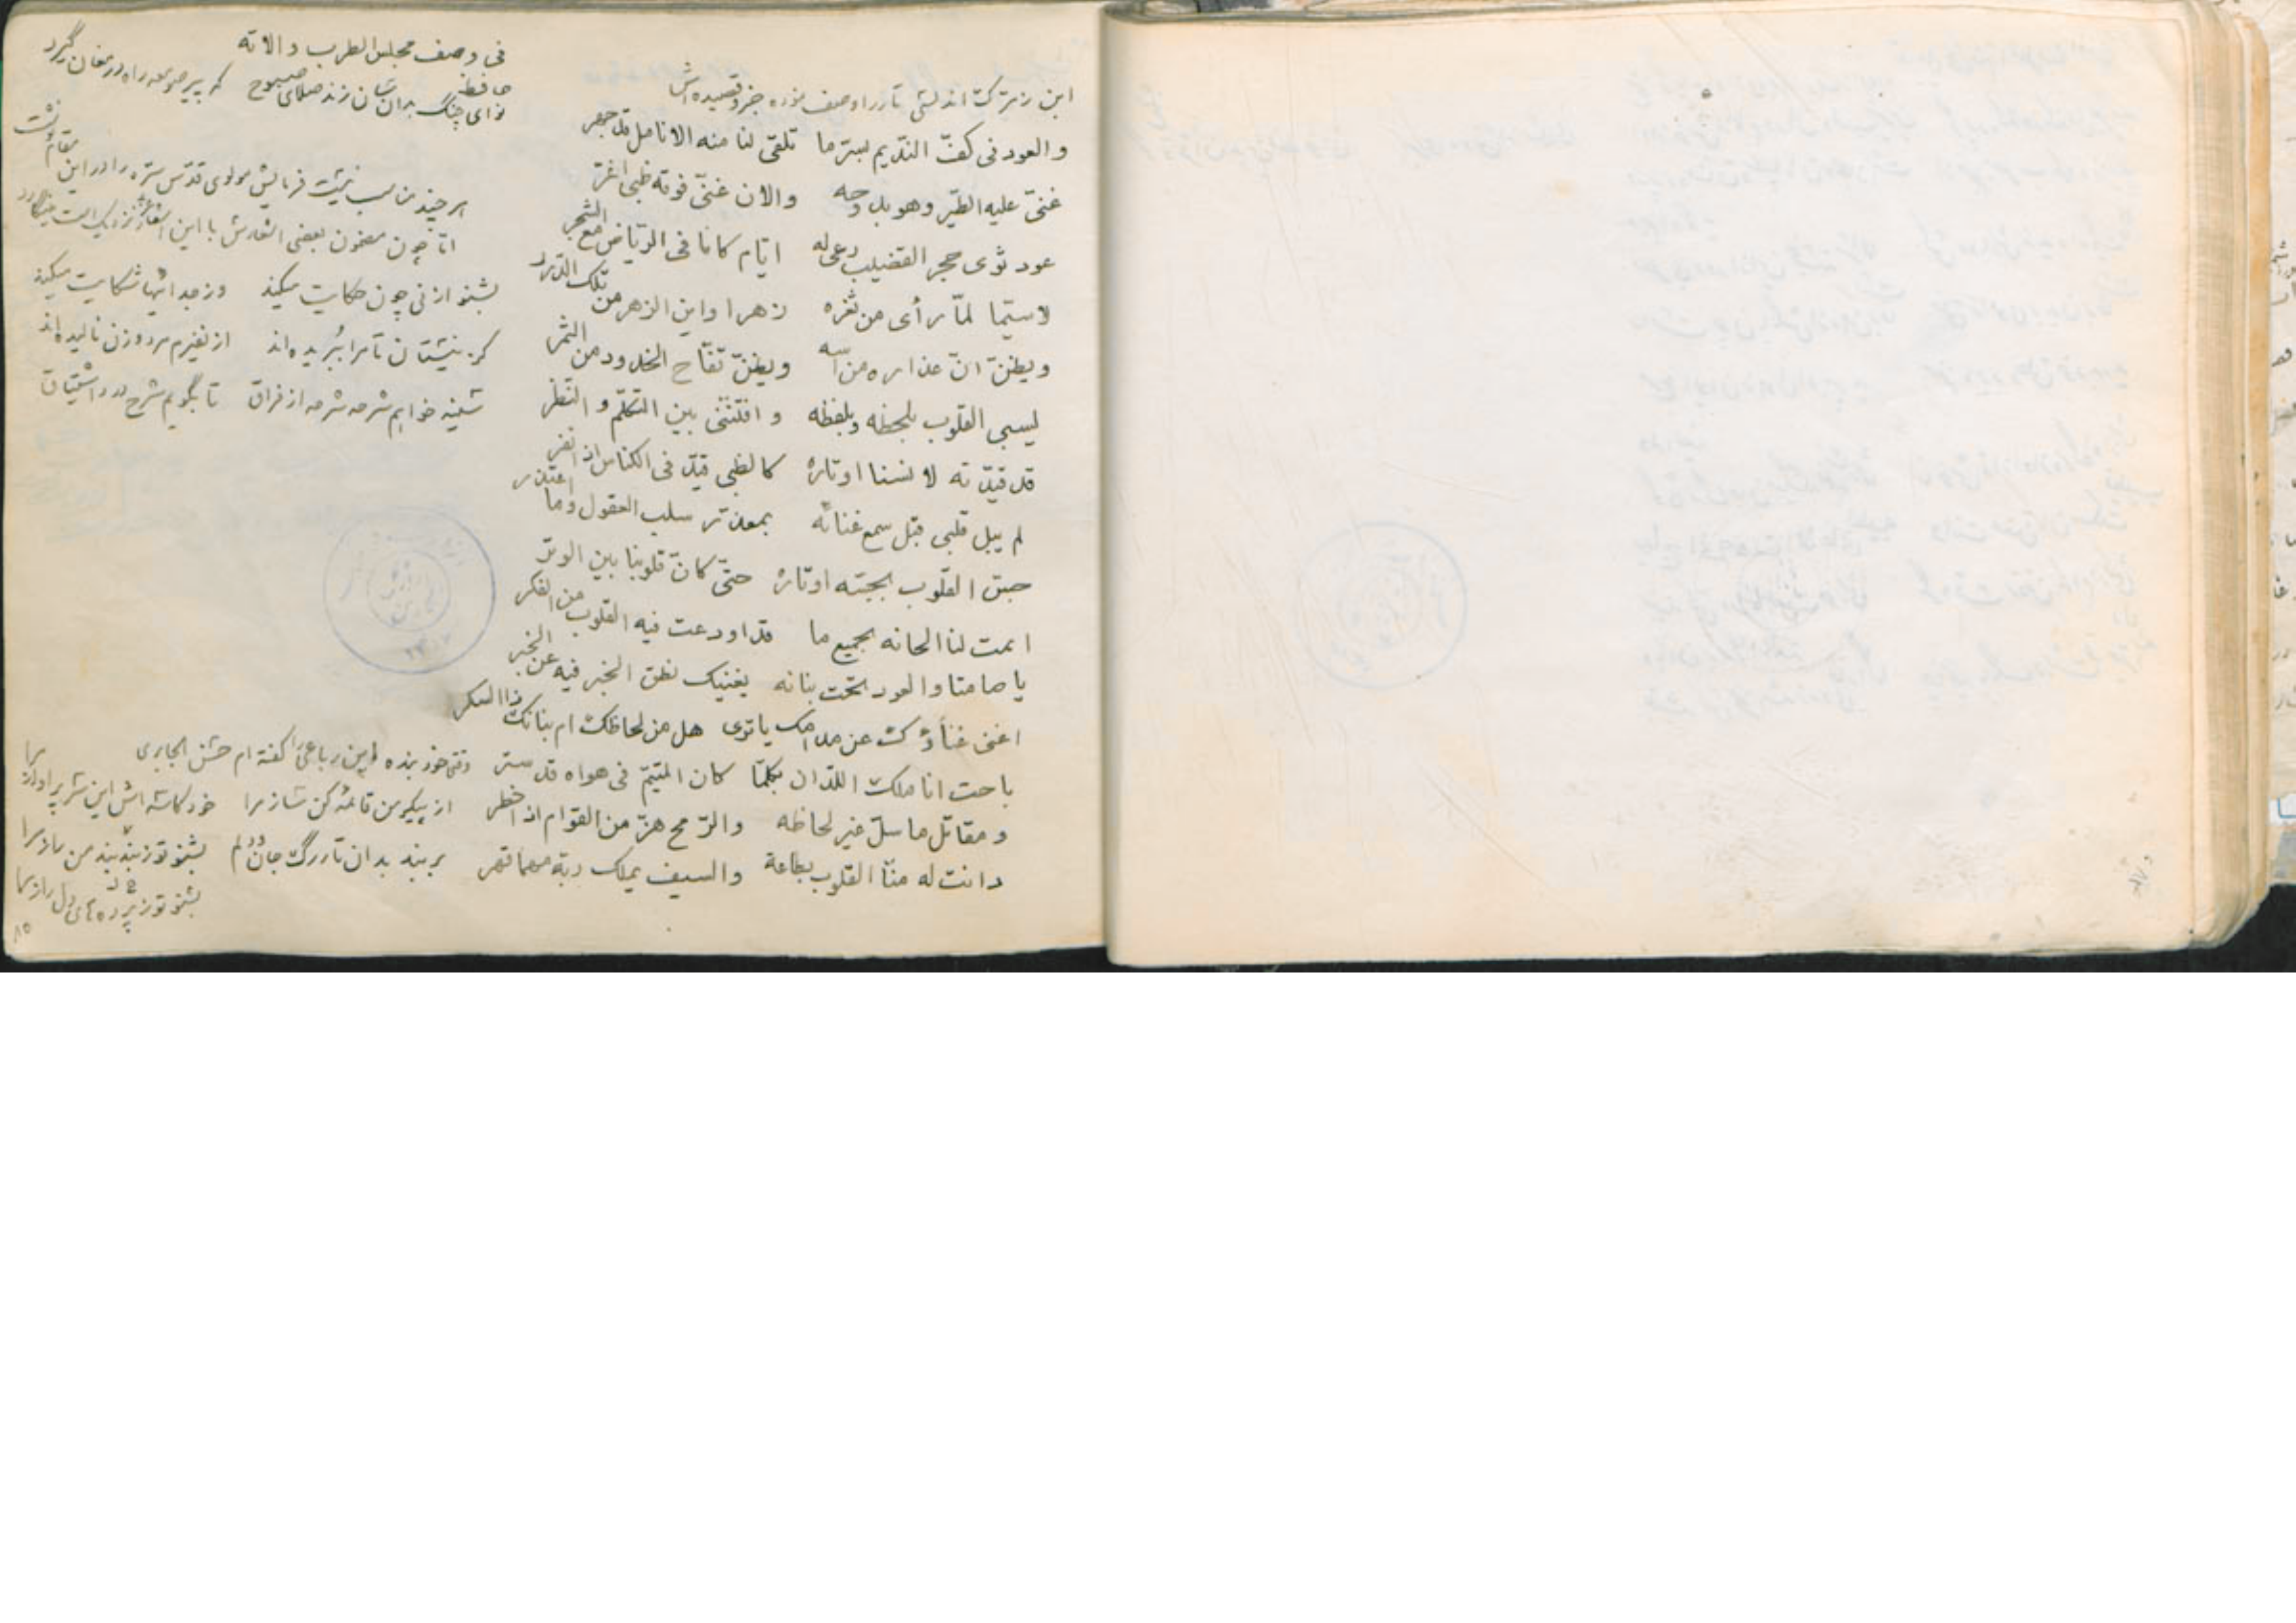 فی وصف مجلس الطرب و الاته
حافظ
نوای چنگ بدان سان زند صلای صبوح که پیر صومعه راه در مغان گیرد
ابن زمرک اندلسی تار را وصف نموده جزو قصیده اش
والعود فی کفّ الندّیم بسرّ ما تلقی لنا منه الانامل قد جهر
غنیّ علیه الطیّر وهو بدوحه والان غنیّ فوقه ظبی اغرّ
عود ثوی حجر القضیب رعی له ایّام کانا فی الریّاض مع الشجر
لاسیّما لمّا رأی من ثغره زهرا واین الزهر من تلک الدّرر
ویظنّ انّ عذاره من آسه ویظنّ تفّاح الخدود من الثمر
یسبی القلوب بلحظه وبلفظه وافتنتی بین التکلّم و النّظر
قد قیّدته لانسنا اوتاره کالظبی قیّد فی الکناس اذا نفر
لم یبل قلبی قبل سمع غنائه بمعذّر سلب العقول وما اعتذر
حبس القلوب بجسّه اوتاره حتّی کانّ قلوبنا بین الوتر
نمت لنا الحانه بجمیع ما قد اودعت فیه القلوب من الفکر
یا صامتا والعود تحت بنانه یغنیک نطق الخبر فیه عن الخبر
اغنی غناؤک عن مدامک یا تری هل من لحاظک ام بنانک ذا السکر
باحت اناملک اللدّان بکلمّا کان المتیّم فی هواه قد ستر
و مقاتل ما سلّ غیر لحاظه والرّمح هزّ من القوام اذا خطر
دانت له منّا القلوب بطاعة والسیف یملک ربه مهما قهر
هر چند مناسب نیست فرمایش مولوی قدّس سرّه را در این مقام نوشت
امّا چون مضمون بعضی اشعارش با این اشعار نزدیک است
بشنو از نی چون حکایت میکند وز جدائیها شکایت میکند
کز نیستان تا مرا ببریده اند از نفیرم مرد و زن نالیده اند
سینه خواهم شرحه شرحه از فراق تا بگویم شرح درد اشتیاق
وقتی خود بنده این رباعی را گفته ام حسن الجابری
از پیکر من قائمه کن ساز مرا خود کاسه اش این سر پر آواز مرا
بربند بدان تار رگ جان و دلم بشنو تو ز بند بند من راز مرا
بشنو تو ز پرده های دل راز مرا
۸۵